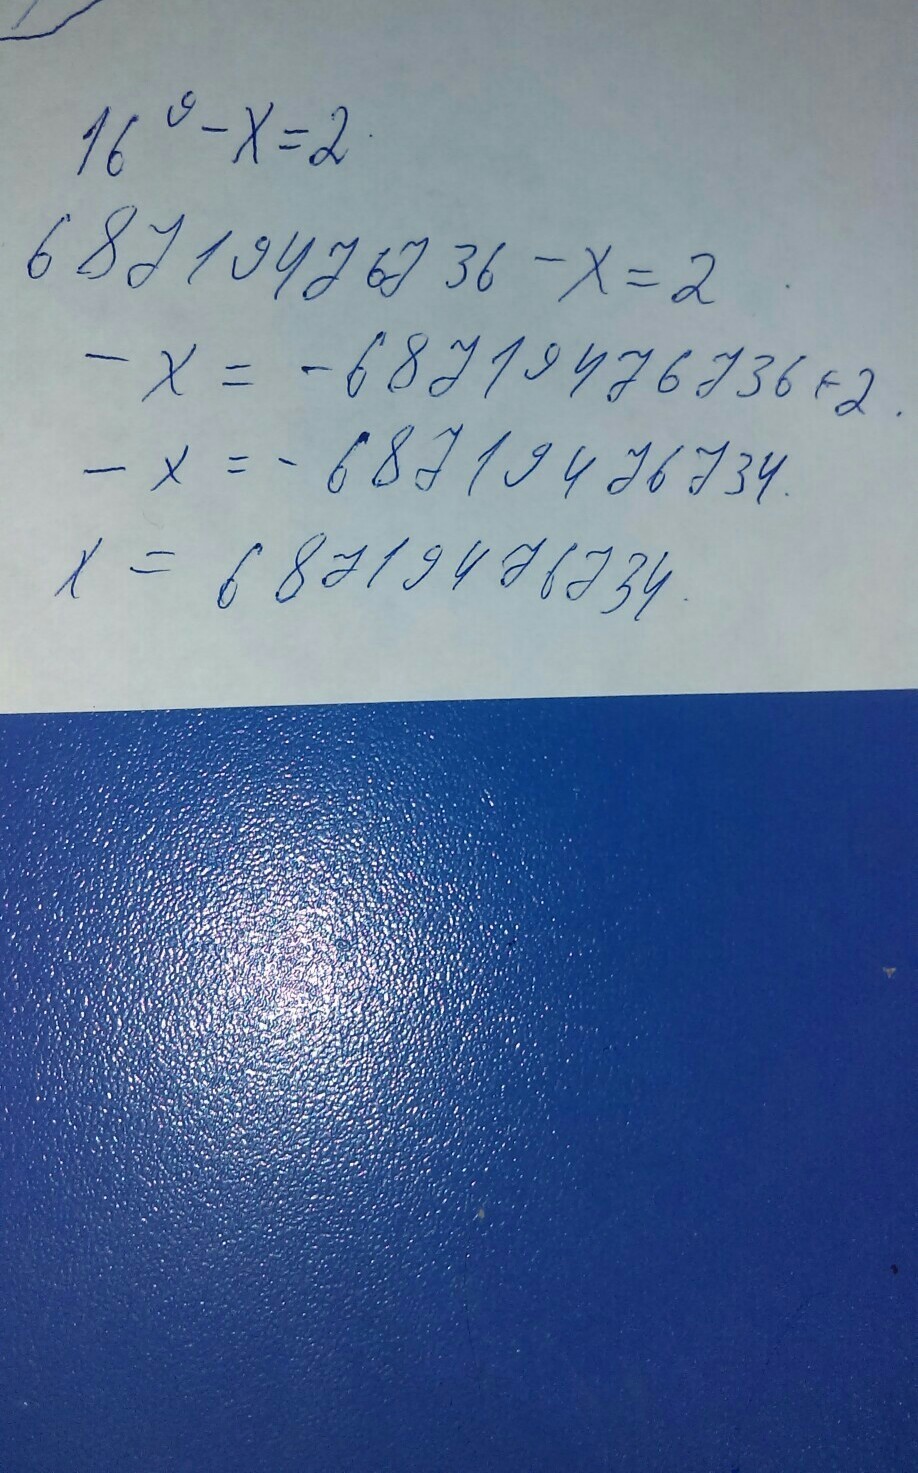 16⁹ - x = 2.
68719476736 - x = 2.
- x = - 68719476736 + 2.
- x = - 68719476734.
x = 68719476734.